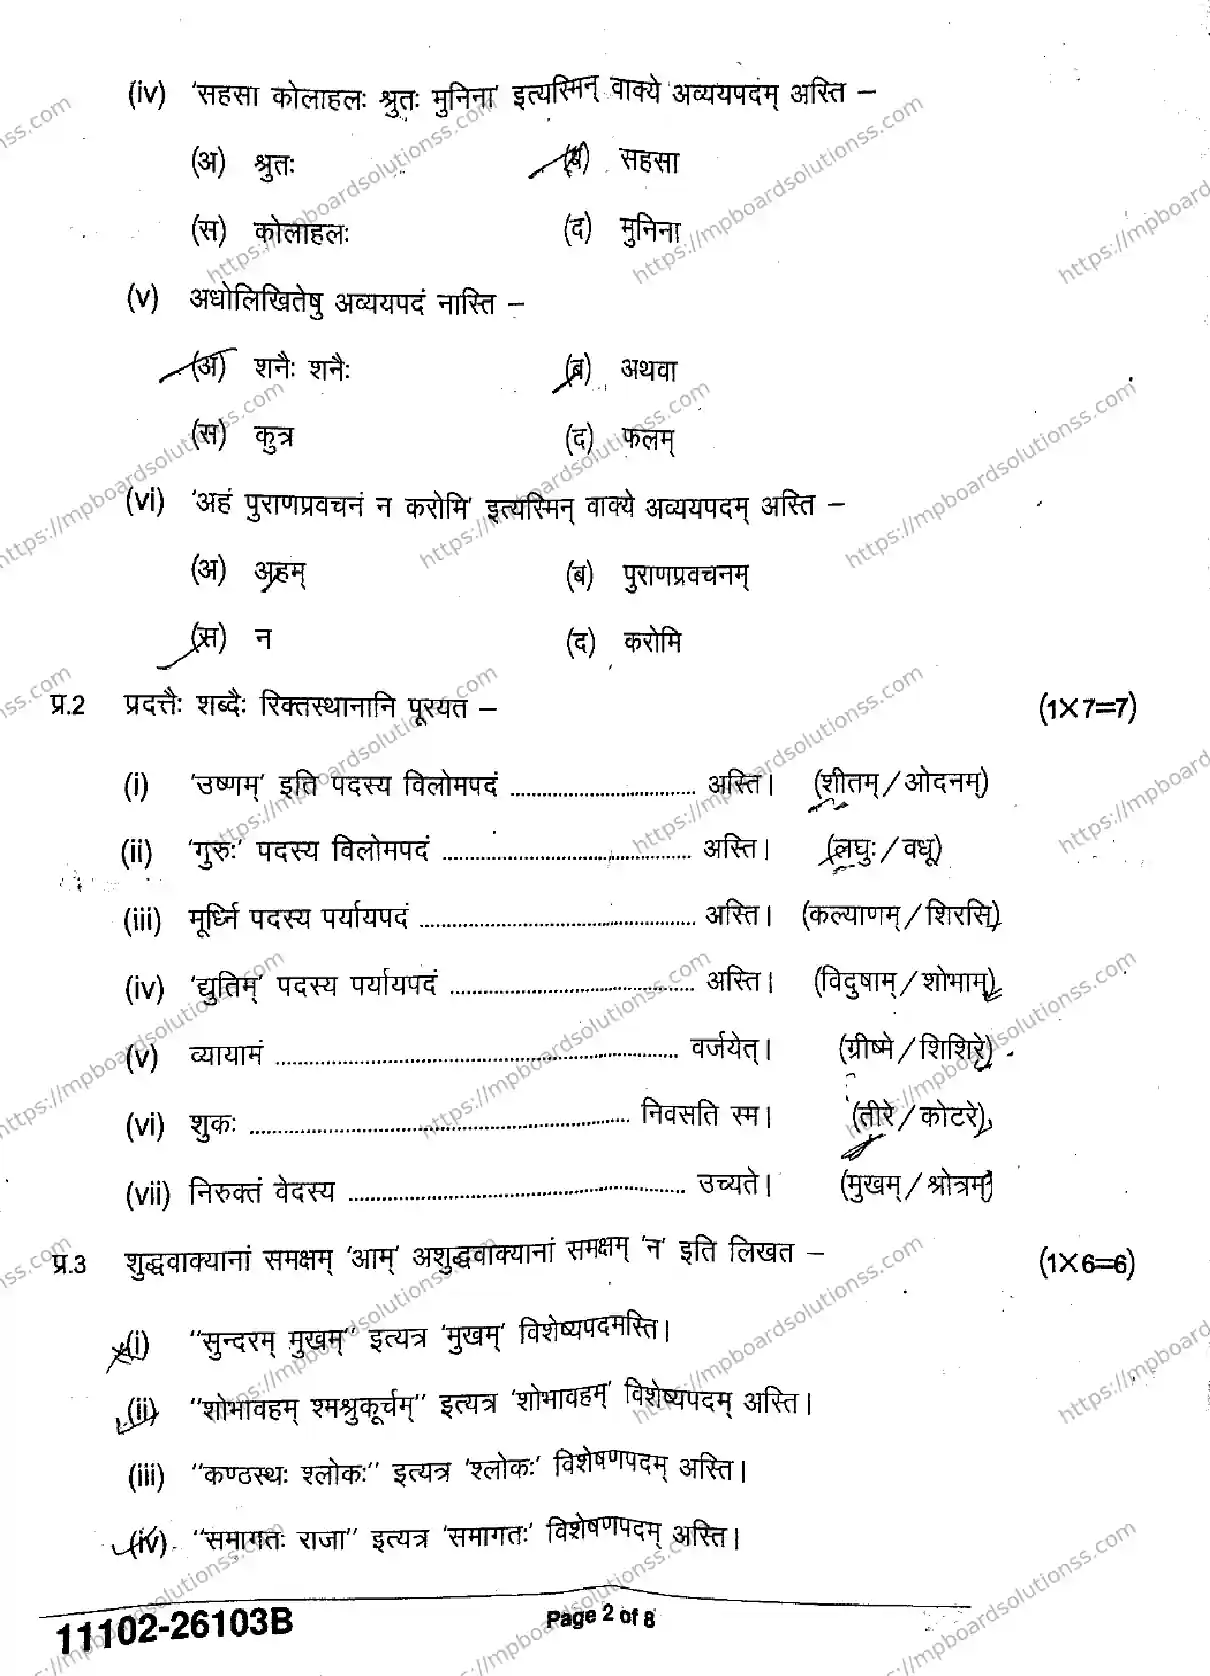 (iv) 'सहसा कोलाहलः श्रुतः मुनिना' इत्यस्मिन् वाक्ये अव्ययपदम् अस्ति –
(अ) श्रुतः (ब) सहसा
(स) कोलाहलः (द) मुनिना
(v) अधोलिखितेषु अव्ययपदं नास्ति –
(अ) शनैः शनैः (ब) अथवा
(स) कुत्र (द) फलम्
(vi) 'अहं पुराणप्रवचनं न करोमि' इत्यस्मिन् वाक्ये अव्ययपदम् अस्ति –
(अ) अहम् (ब) पुराणप्रवचनम्
(स) न (द) करोमि
प्र.2 प्रदत्तैः शब्दैः रिक्तस्थानानि पूरयत – (1×7=7)
(i) 'उष्णम्' इति पदस्य विलोमपदं .................... अस्ति। (शीतम् / ओदनम्)
(ii) 'गुरुः' पदस्य विलोमपदं .................... अस्ति। (लघुः / वधू)
(iii) मूर्ध्नि पदस्य पर्यायपदं .................... अस्ति। (कल्याणम् / शिरसि)
(iv) 'द्युतिम्' पदस्य पर्यायपदं .................... अस्ति। (विदुषाम् / शोभाम्)
(v) व्यायामं .................... वर्जयेत्। (ग्रीष्मे / शिशिरे)
(vi) शुकः .................... निवसति स्म। (तीरे / कोटरे)
(vii) निरुक्तं वेदस्य .................... उच्यते। (मुखम् / श्रोत्रम्)
प्र.3 शुद्धवाक्यानां समक्षम् 'आम्' अशुद्धवाक्यानां समक्षम् 'न' इति लिखत – (1×6=6)
(i) "सुन्दरम् मुखम्" इत्यत्र 'मुखम्' विशेष्यपदमस्ति।
(ii) "शोभावहम् श्मश्रुकूर्चम्" इत्यत्र 'शोभावहम्' विशेष्यपदम् अस्ति।
(iii) "कण्ठस्थः श्लोकः" इत्यत्र 'श्लोकः' विशेषणपदम् अस्ति।
(iv) "समागतः राजा" इत्यत्र 'समागतः' विशेषणपदम् अस्ति।
11102-26103B Page 2 of 8
https://mpboardsolutionss.com